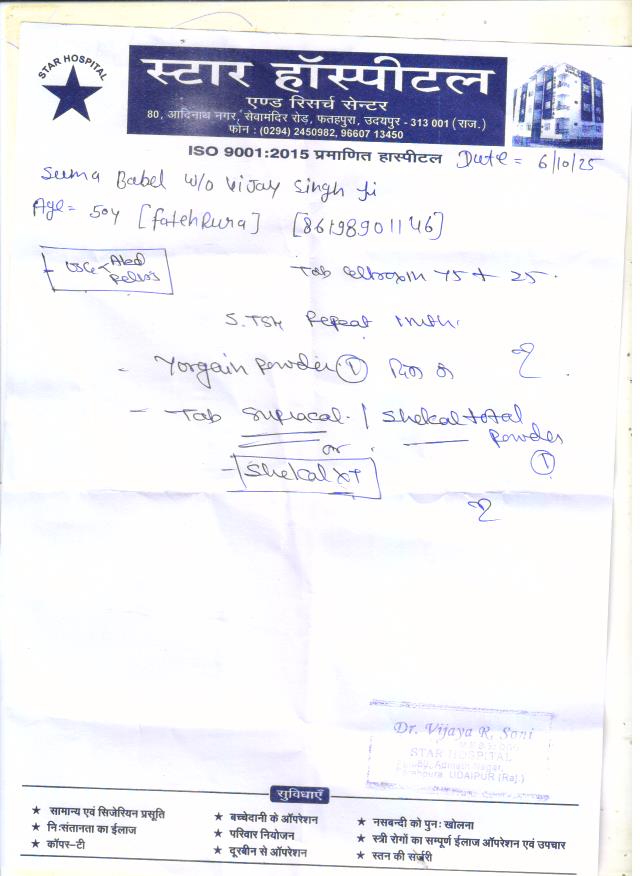 STAR HOSPITAL
स्टार हॉस्पीटल
एण्ड रिसर्च सेन्टर
80, आदिनाथ नगर, सेवामंदिर रोड़, फतहपुरा, उदयपुर - 313 001 (राज.)
फोन : (0294) 2450982, 96607 13450
ISO 9001:2015 प्रमाणित हास्पीटल
Date = 6/10/25
Babel w/o Vijay Singh Ji
Age = 50y [fatehpura] [86198901146]
USG Abd
Pelvis
Tab Eltroxin 75 + 25
S.TSH Repeat
- powder 1
- Tab Supracal / Shekal total
powder
or
1
- Shekal XT
Dr. Vijaya R. Soni
STAR HOSPITAL
UDAIPUR (Raj.)
सुविधाएँ
★ सामान्य एवं सिजेरियन प्रसूति
★ निःसंतानता का ईलाज
★ कॉपर-टी
★ बच्चेदानी के ऑपरेशन
★ परिवार नियोजन
★ दूरबीन से ऑपरेशन
★ नसबन्दी को पुनः खोलना
★ स्त्री रोगों का सम्पूर्ण ईलाज ऑपरेशन एवं उपचार
★ स्तन की सर्जरी